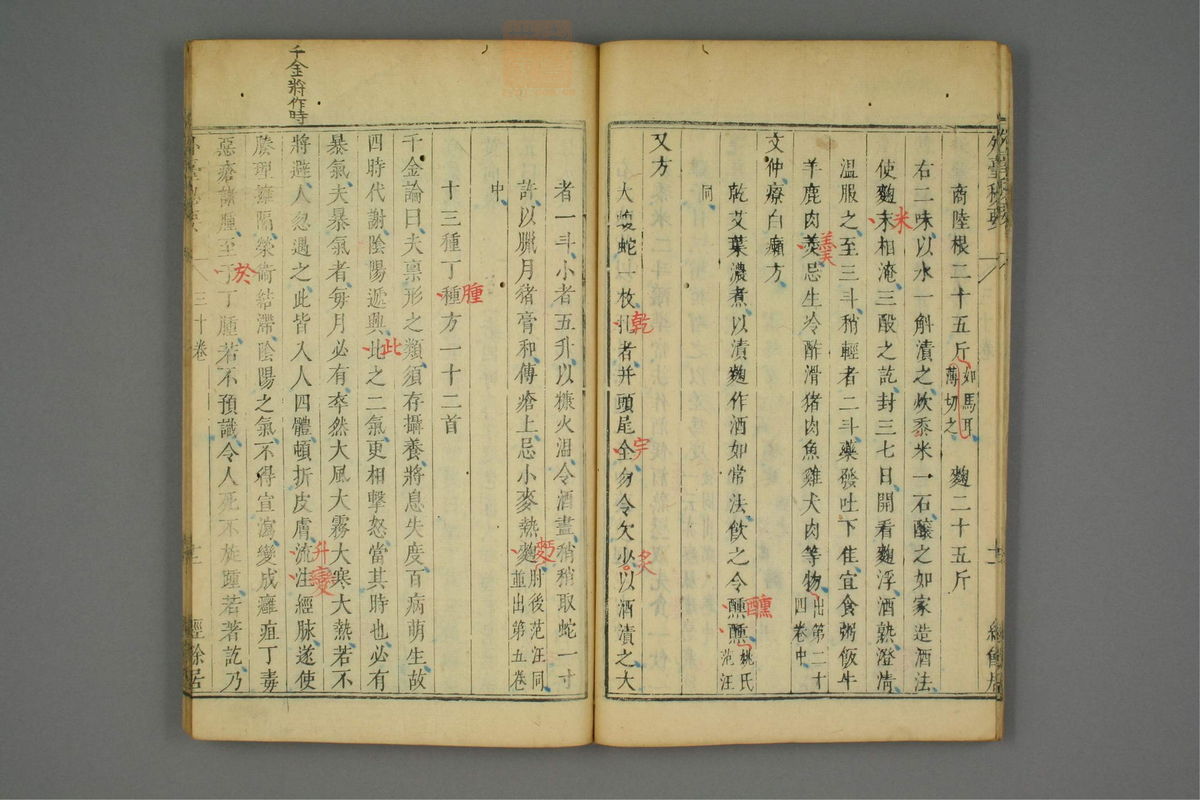 商陸根二十五斤 如馬耳薄切之 麴二十五斤
右二味以水一斛漬之炊黍米一石釀之如家造酒法
使麴末相淹三酘之訖封三七日開看麴浮酒熟澄清
米
溫服之至三斗稍輕者二斗藥發吐下佳宜食粥飯牛
羊鹿肉羮忌生冷酢滑猪肉魚雞犬肉等物 出第二十四卷中
羹
文仲療白癩方
乾艾葉濃煮以漬麴作酒如常法飲之令醺醺 姚氏范汪
醺
同
又方
大蝮蛇一枚者并頭尾全勿令欠少以酒漬之大
乾
完
炙
者一斗小者五升以糠火溫令酒盡稍稍取蛇一寸
許以臘月猪膏和傅瘡上忌小麥熱麵 肘後范汪同並出第五卷
麪
中
十三種丁種方一十二首
腫
千金論曰夫稟形之類須存攝養將息失度百病萌生故
四時代謝陰陽遞興此之二氣更相擊怒當其時也必有
此
暴氣夫暴氣者每月必有卒然大風大霧大寒大熱若不
將避人忽遇之此皆入人四體頓折皮膚流注經脉遂使
升
變
千金將作時
腠理擁隔榮衛結滯陰陽之氣不得宣瀉變成癰疽丁毒
惡瘡諸腫至丁丁腫若不預識令人死不旋踵若著訖乃
於
三十卷
經餘居